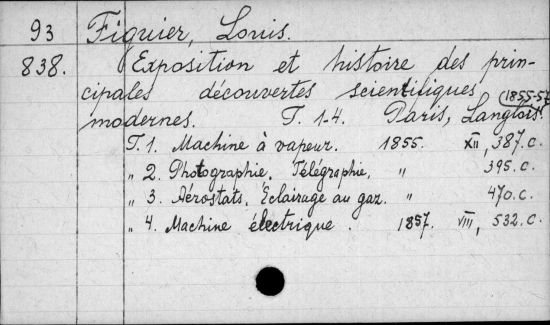 93 Figuier, Louis.
838. Exposition et histoire des prin-
cipales découvertes scientifiques
modernes. T. 1-4. Paris, Langlois. (1855-57
T. 1. Machine à vapeur. 1855. XII, 387.c.
„ 2. Photographie. Télégraphie, „ 395.c.
„ 3. Aérostats. Eclairage au gaz. „ 470.c.
„ 4. Machine électrique. 1857. VIII, 532.c.